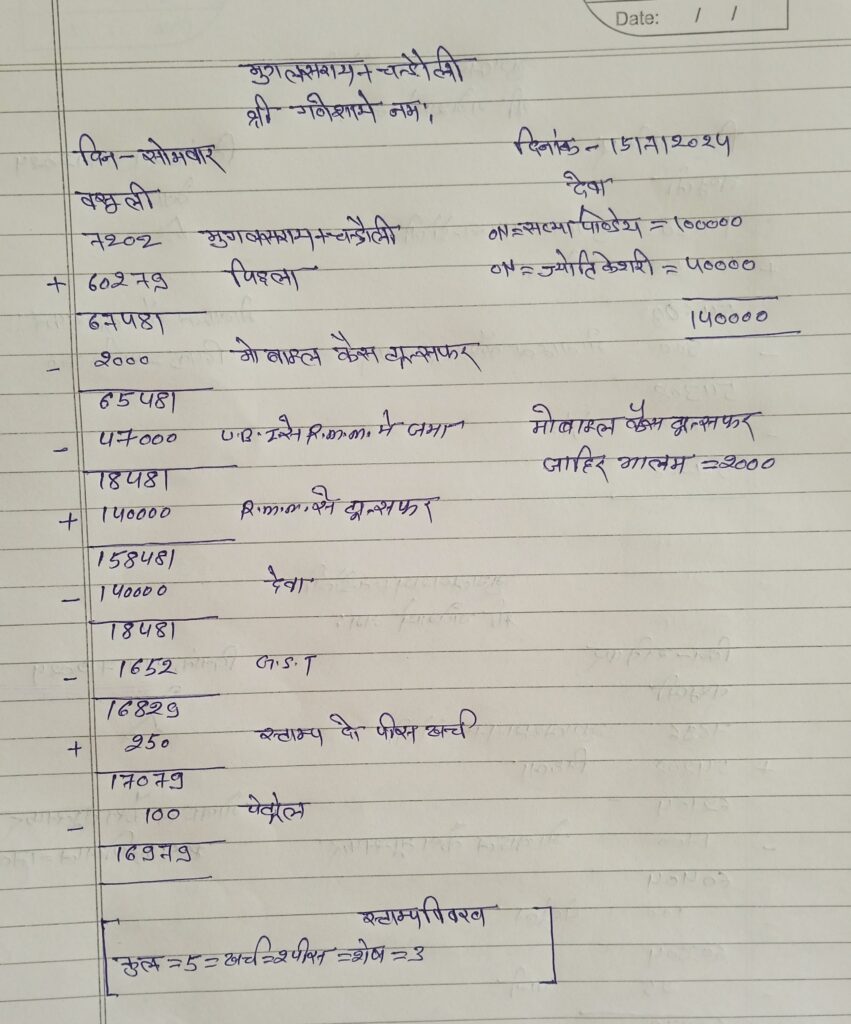 Date: / /
मुगलसराय + चन्दौली
श्री गणेशाय नमः
दिन - सोमवार
दिनांक - 15/7/2024
वसूली
देवा
7202 मुगलसराय + चन्दौली
ON = सत्या पाण्डेय = 100000
+ 60279 पिछला
ON = ज्योति केशरी = 40000
67481
140000
- 2000 मोबाइल कैस ट्रान्सफर
65481
- 47000 U.B.I से R.m.m. मे जमा
मोबाइल कैस ट्रान्सफर
18481
जाहिर आलम = 2000
+ 140000 R.m.m. से ट्रान्सफर
158481
- 140000 देवा
18481
- 1652 G.S.T
16829
+ 250 स्टाम्प दो पीस खर्च
17079
- 100 पेट्रोल
16979
स्टाम्प विवरण
कुल = 5 = खर्च = 2 पीस = शेष = 3